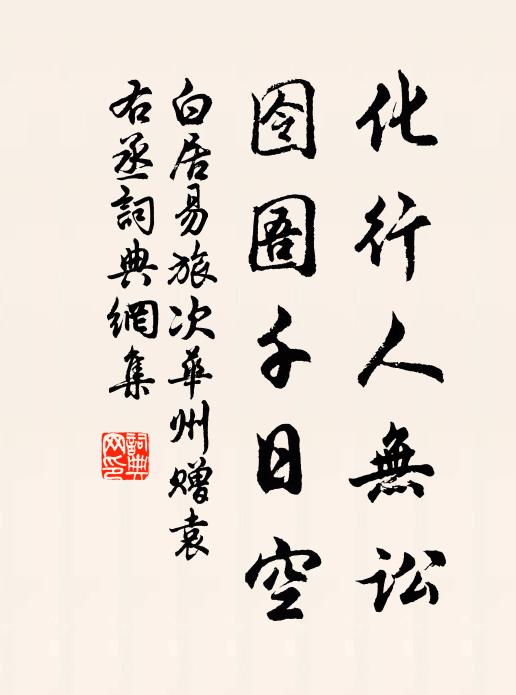 化行人無訟
囹圄千日空
白居易旅次華州贈袁
右丞詞典網集
詞典網印